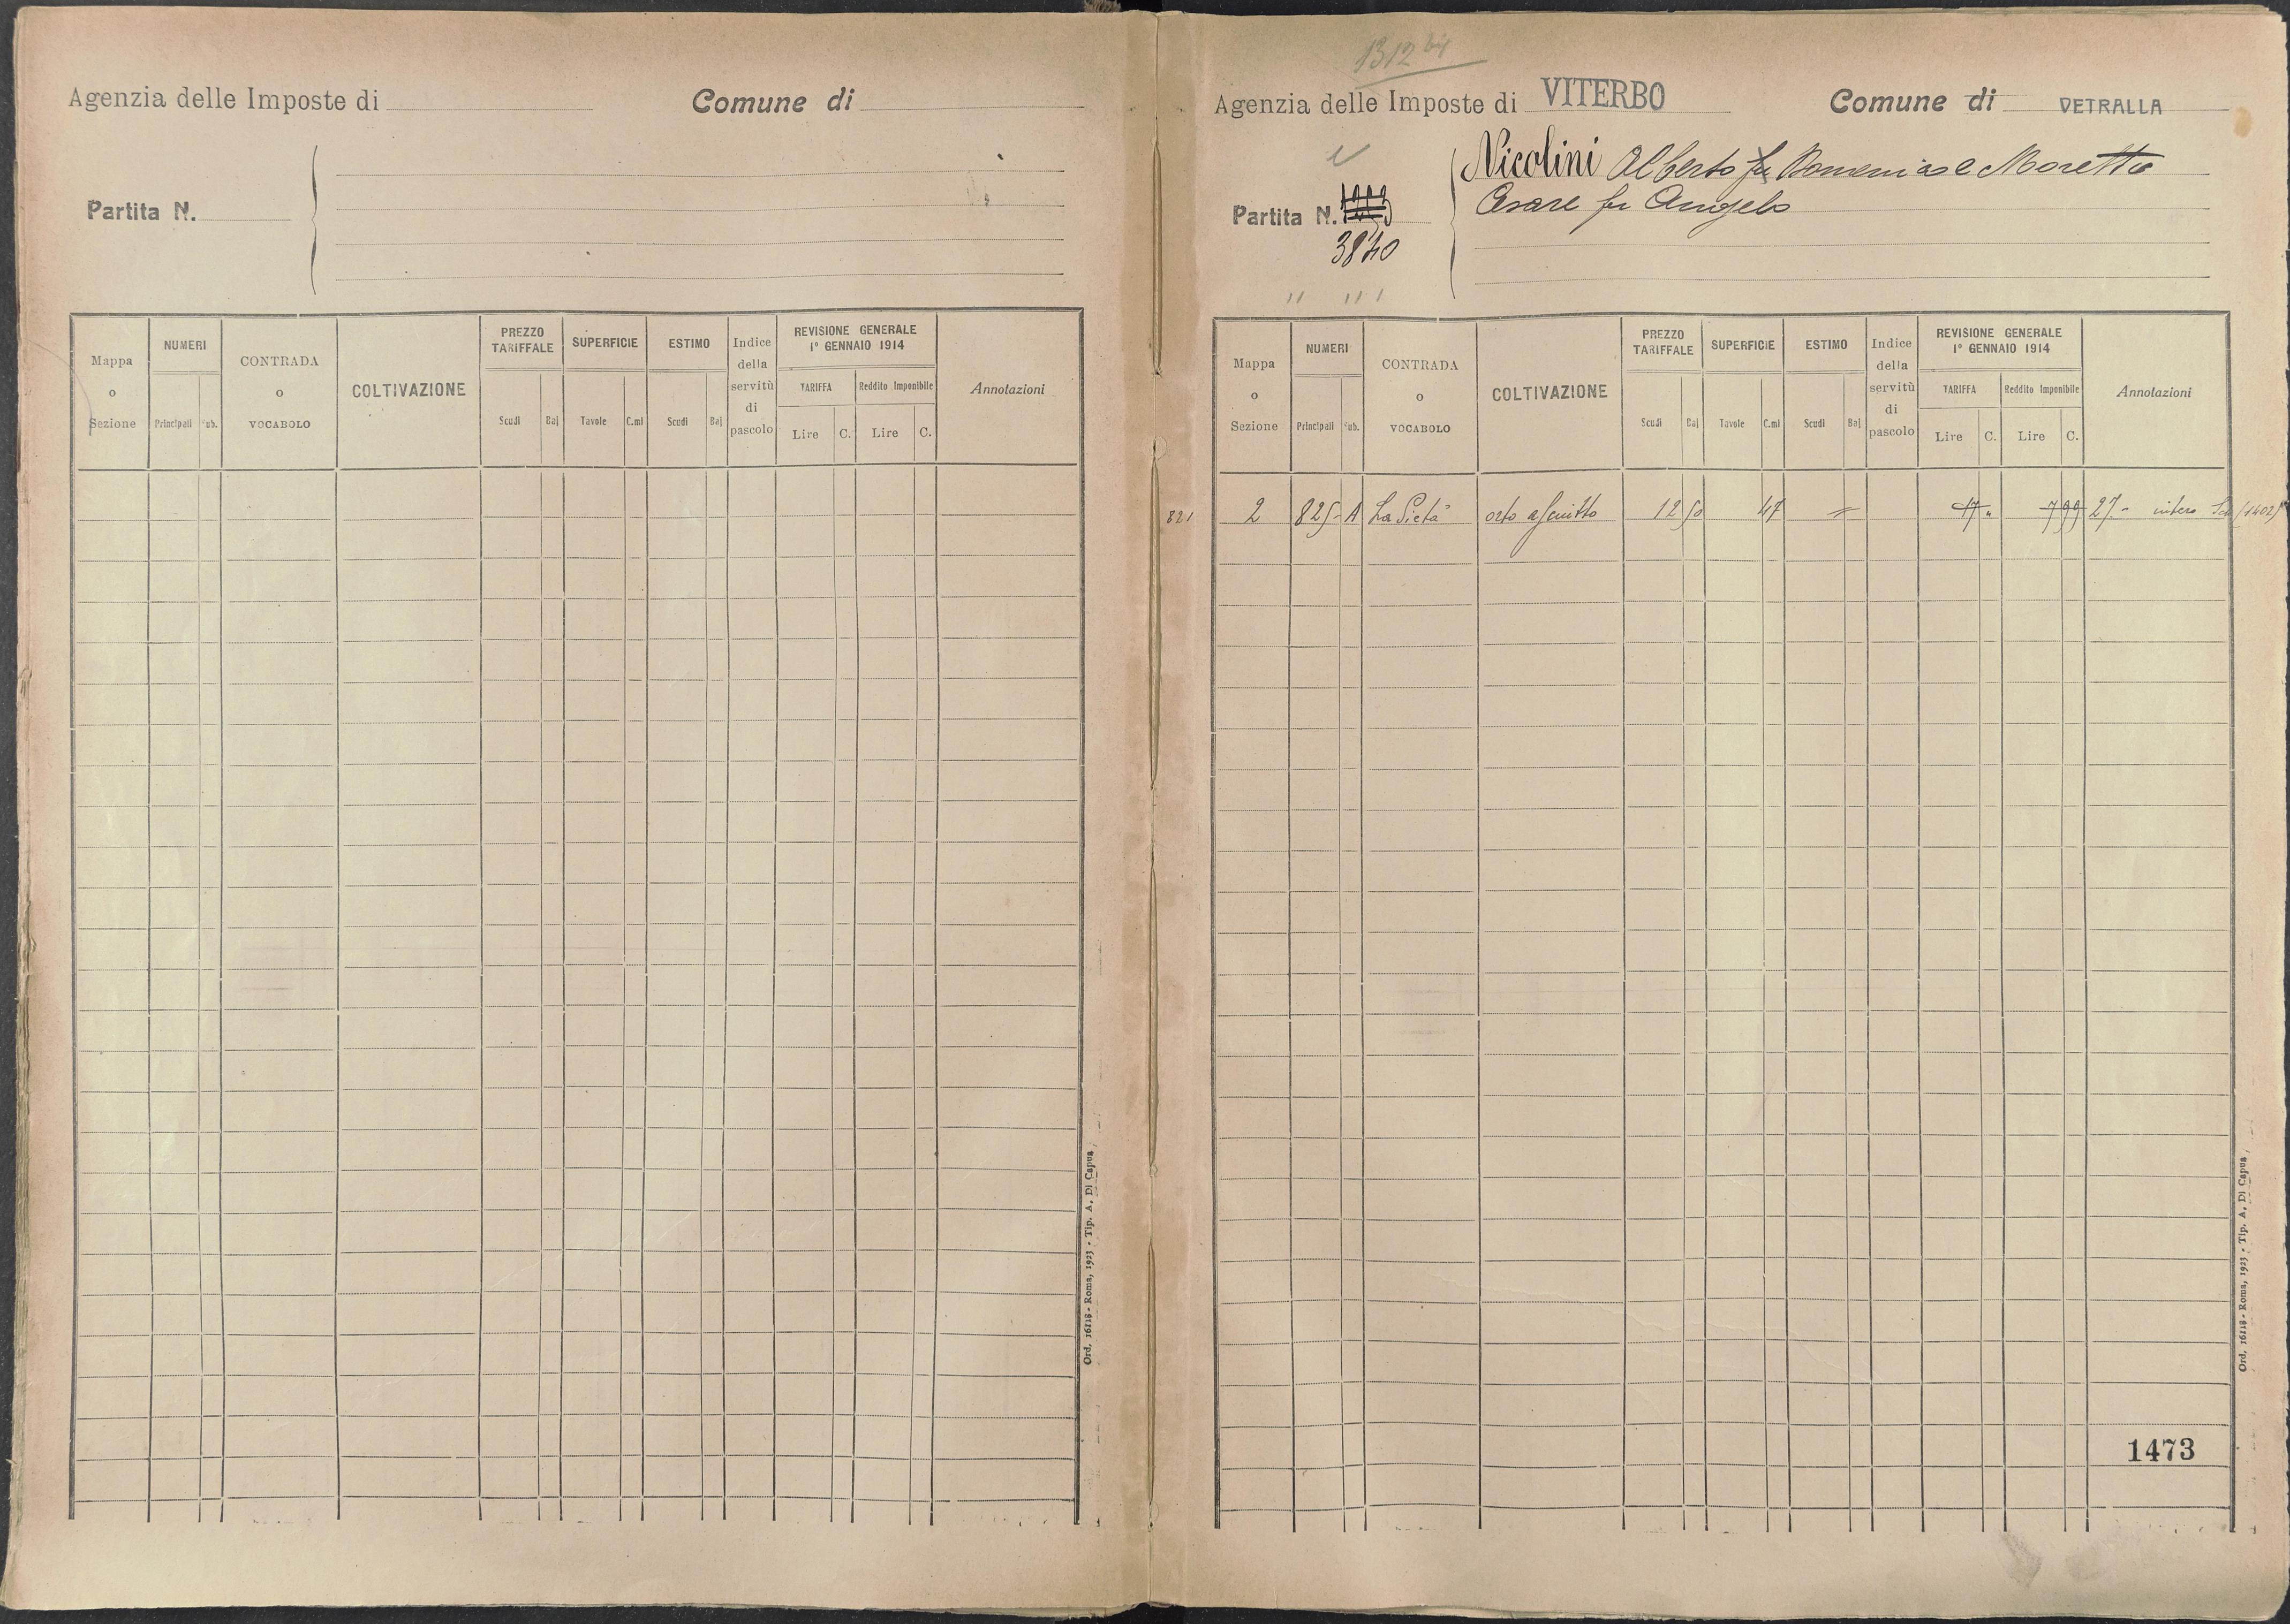 Agenzia delle Imposte di
Comune di
Partita N.
Mappa o Sezione
NUMERI
Principali
Sub.
CONTRADA o VOCABOLO
COLTIVAZIONE
PREZZO TARIFFALE
Scudi
Baj
SUPERFICIE
Tavole
C.mi
ESTIMO
Scudi
Baj
Indice della servitù di pascolo
REVISIONE GENERALE
1° GENNAIO 1914
TARIFFA
Reddito Imponibile
Lire
C.
Lire
C.
Annotazioni
Ord. 16118 - Roma, 1923 - Tip. A. Di Capua
1312
Agenzia delle Imposte di VITERBO
Comune di VETRALLA
Nicolini Alberto fu Domenico e Moretti
Cesare fu Angelo
Partita N.
3840
Mappa o Sezione
NUMERI
Principali
Sub.
CONTRADA o VOCABOLO
COLTIVAZIONE
PREZZO TARIFFALE
Scudi
Baj
SUPERFICIE
Tavole
C.mi
ESTIMO
Scudi
Baj
Indice della servitù di pascolo
REVISIONE GENERALE
1° GENNAIO 1914
TARIFFA
Reddito Imponibile
Lire
C.
Lire
C.
Annotazioni
821 2 825 A La Pietà orto asciutto 12 50 47 17 " 7 99 27.- intero (1402)
1473
Ord. 16118 - Roma, 1923 - Tip. A. Di Capua